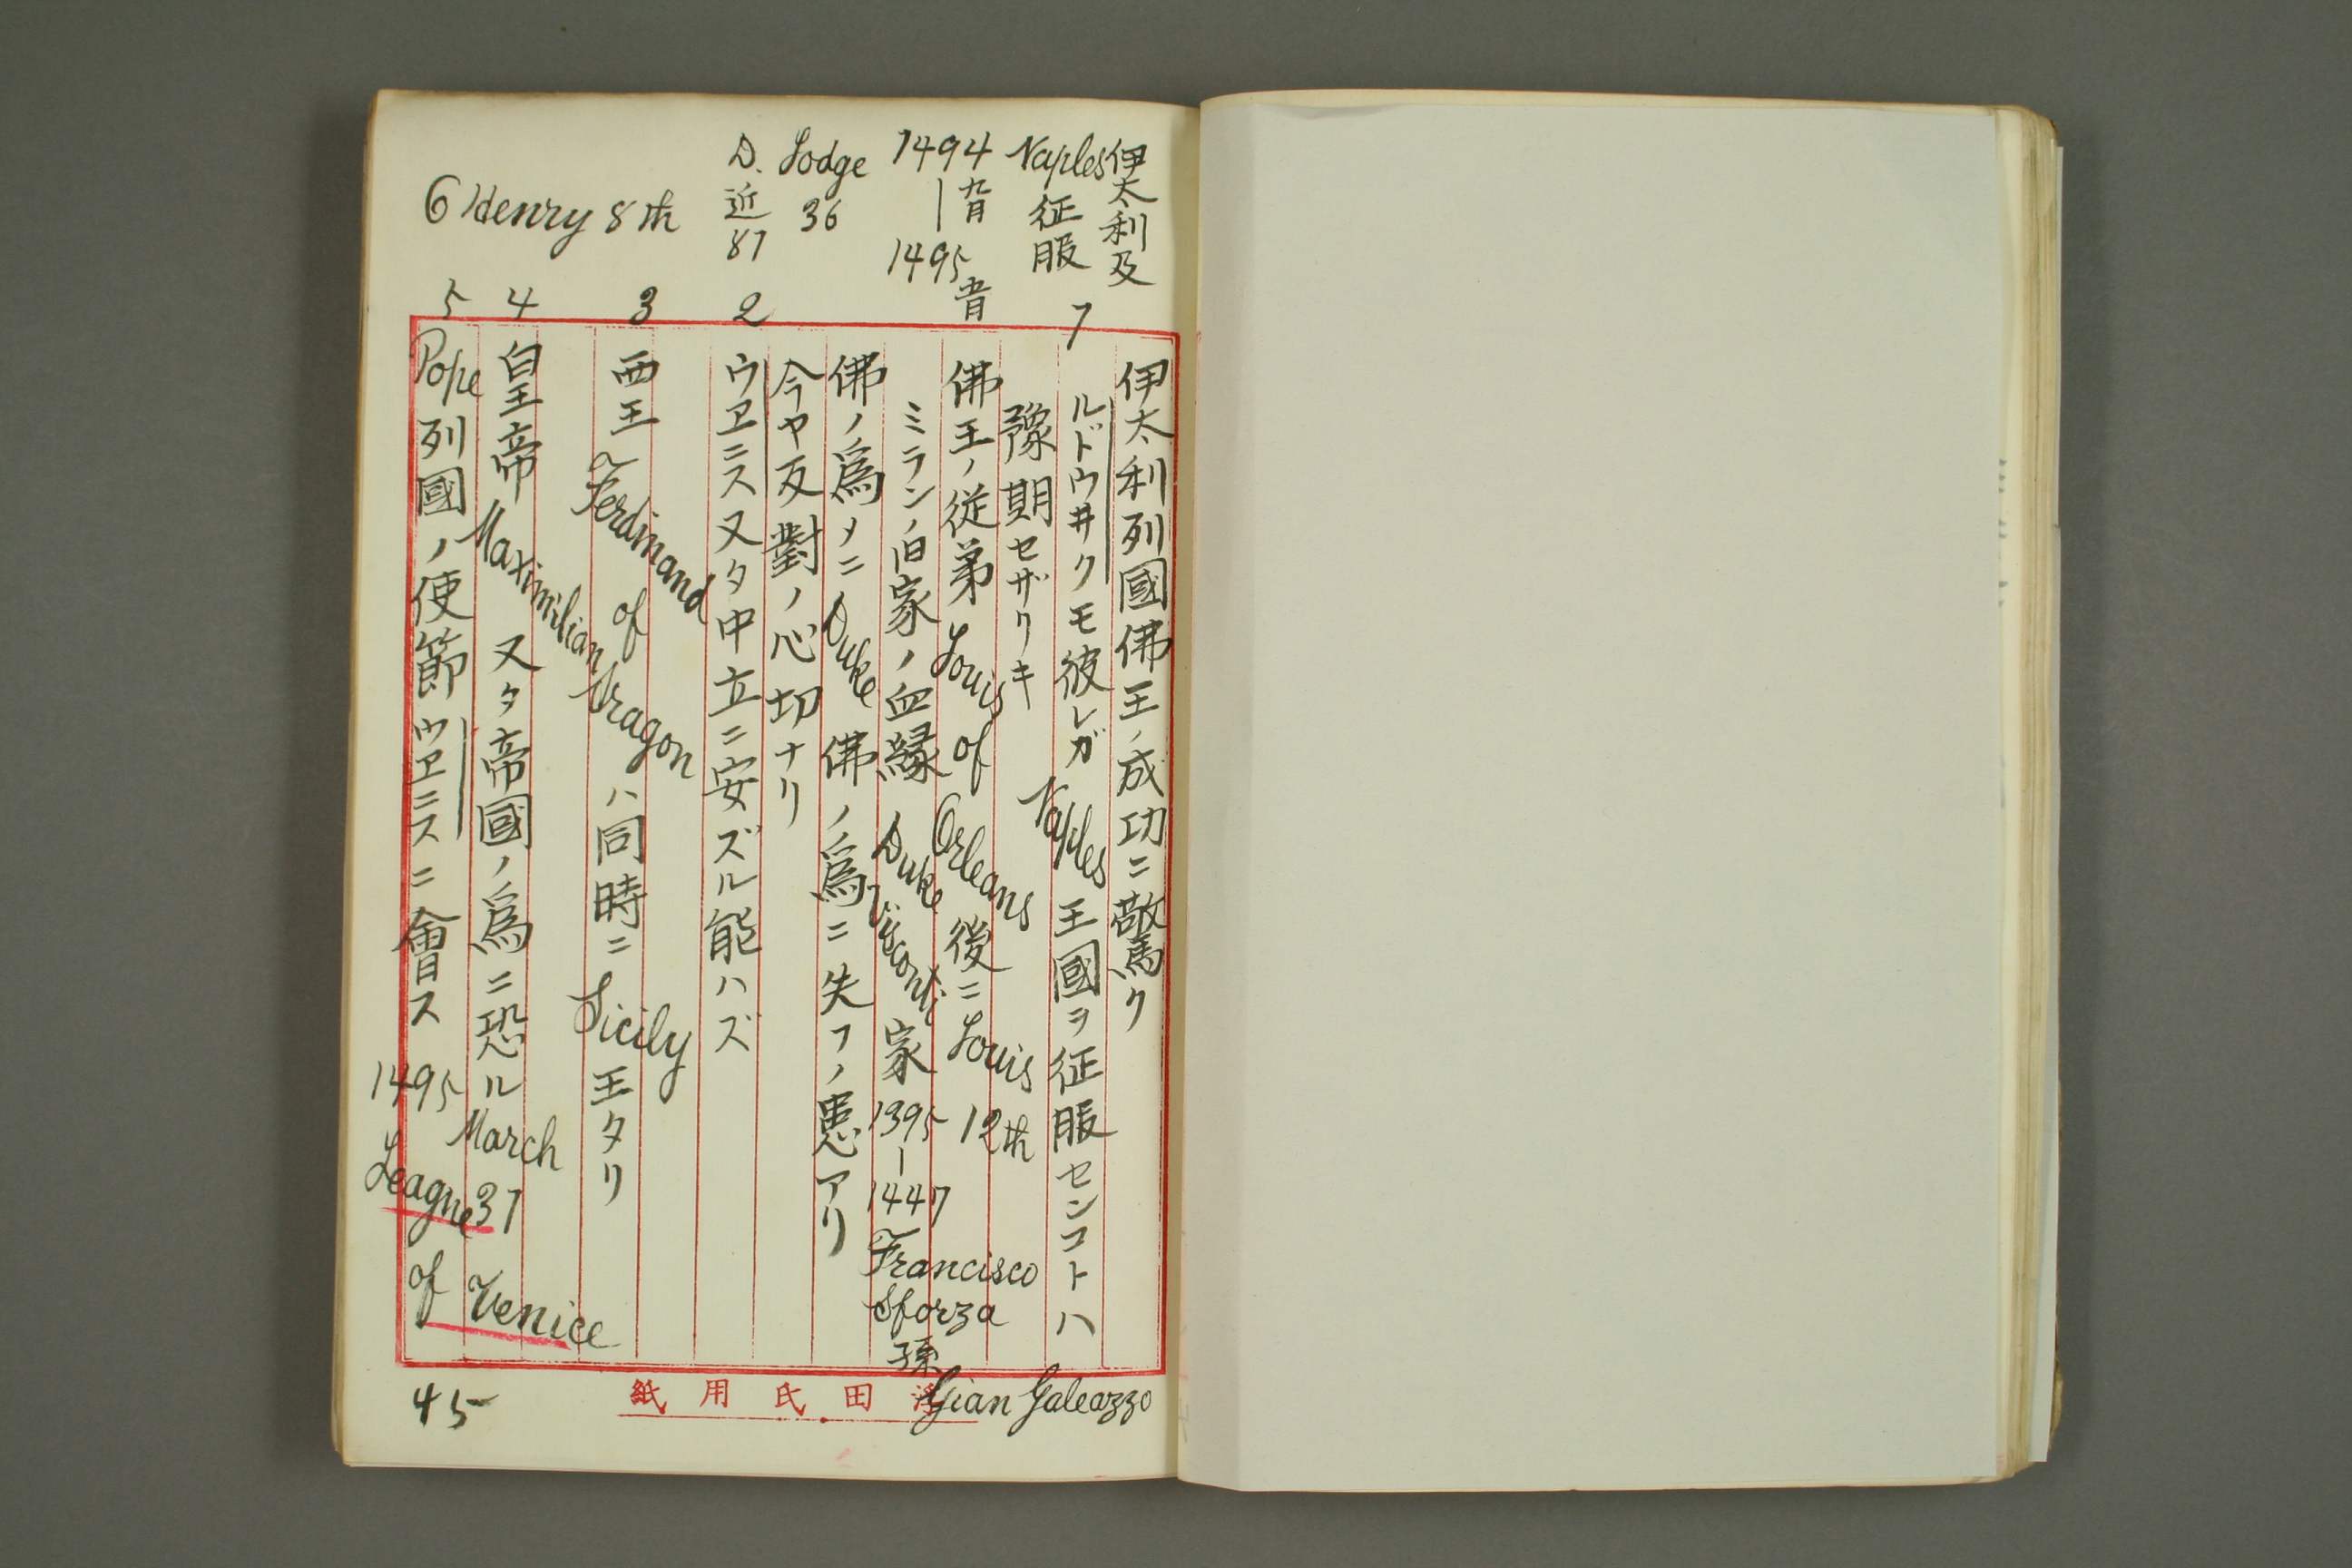 伊太利及
Naples征服
1494九月
|
1495五月
D. Lodge
近 36
87
6 Henry 8th
伊太利列國佛王ノ成功ニ驚ク
1 ルドウ井クモ彼レガ Naples 王國ヲ征服センコトハ
豫期セザリキ
佛王ノ従弟 Louis of Orleans 後ニ Louis 12th
ミランノ旧家ノ血縁 Duke Visconti 家 1395—1447 Francisco Sforza 孫 Gian Galeazzo
佛ノ爲メニ Duke 佛ノ爲ニ失フノ患アリ
今ヤ反對ノ心切ナリ
2 ウヱニス又タ中立ニ安ズル能ハズ
3 西王 Ferdinand of Aragon ハ同時ニ Sicily 王タリ
4 皇帝 Maximilian 又タ帝國ノ爲ニ恐ル March 31
5 Pope 列國ノ使節ウヱニスニ會ス 1495
League of Venice
浮田氏用紙
45